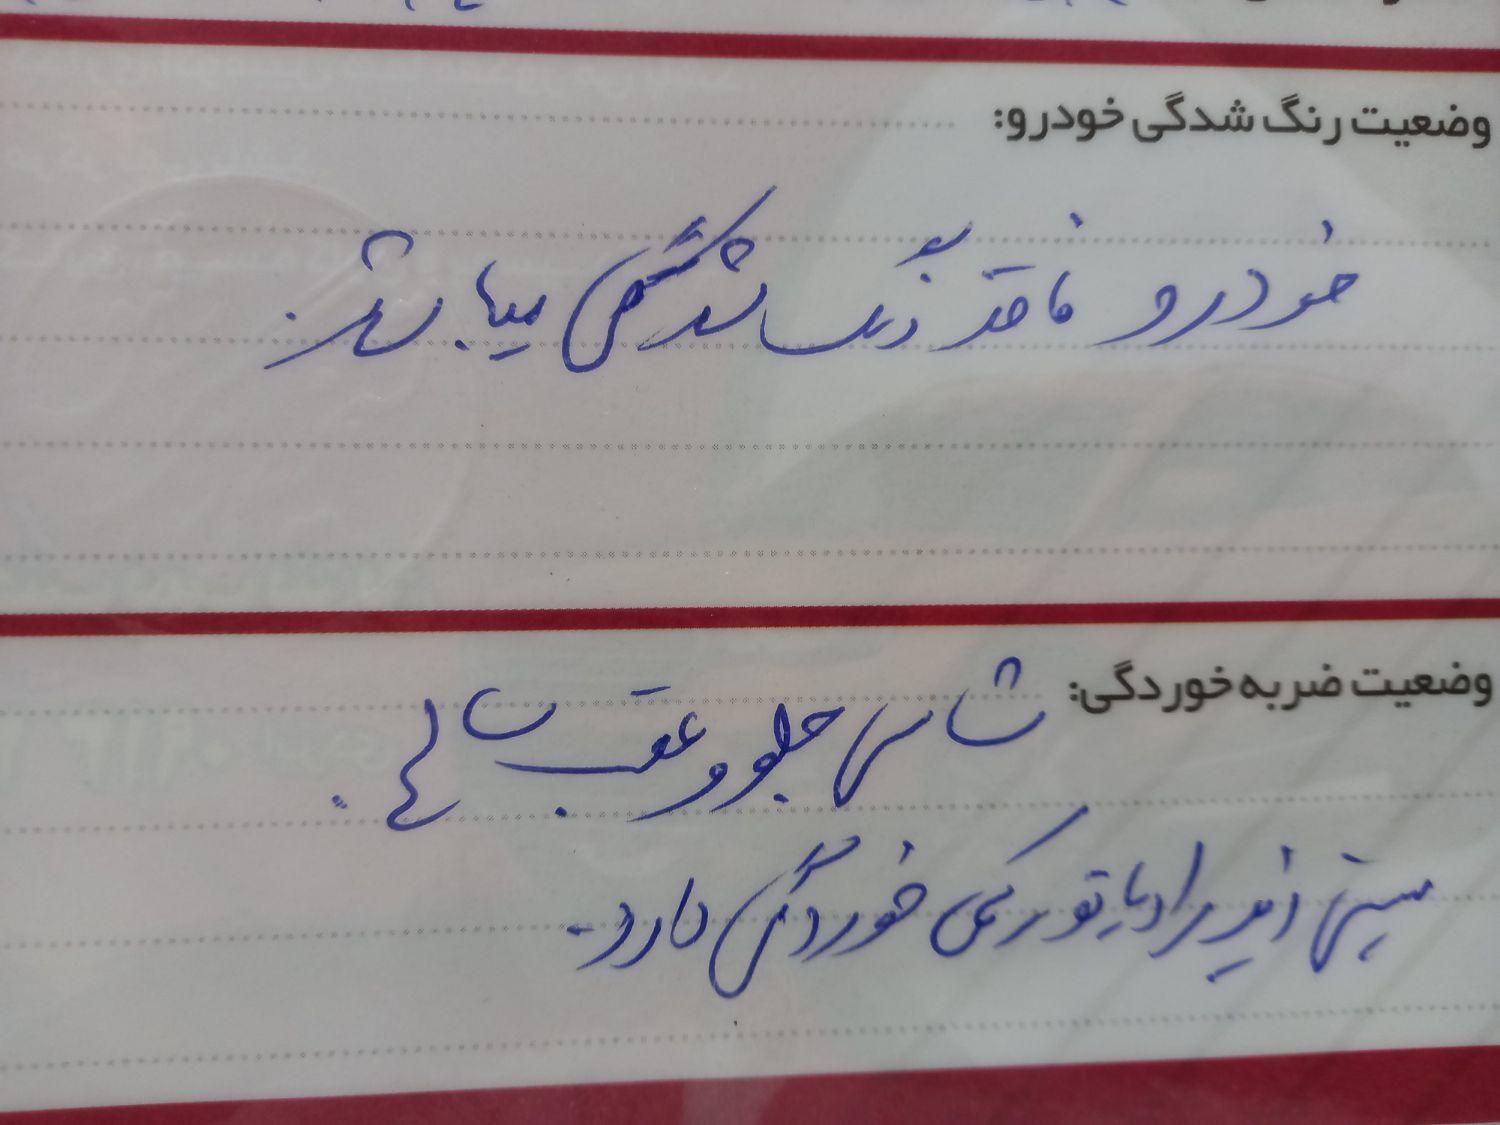 وضعیت رنگ شدگی خودرو:
خودرو فاقد رنگ شدگی میباشد.
وضعیت ضربه خوردگی:
شاسی جلو و عقب سالم.
سینی زیر رادیاتور کمی خوردگی دارد.